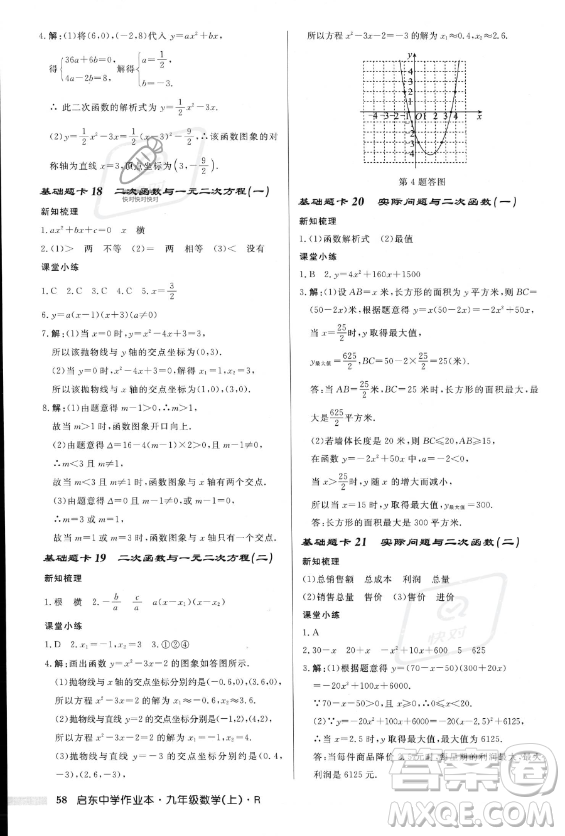 4.解:(1)将(6,0)、(-2,8)代入 y=ax²+bx,
得{36a+6b=0, 4a-2b=8, 解得{a=1/2, b=-3.
∴ 此二次函数的解析式为 y=1/2x²-3x.
(2)y=1/2x²-3x=1/2(x-3)²-9/2,∴该函数图象的对
称轴为直线 x=3,顶点坐标为(3,-9/2).
基础题卡 18 二次函数与一元二次方程(一)
快对快对快对
新知梳理
1.ax²+bx+c=0 x 横
2.(1)> 两 不等 (2)= 两 相等 (3)< 没有
课堂小练
1.C 2.C 3.D 4.C 5.x=3/2
6.y=(x-1)(x+3)
7.解:(1)当 x=0 时,y=x²-4x+3=3,
所以该抛物线与 y 轴的交点坐标为(0,3).
(2)当 y=0 时,x²-4x+3=0,解得 x₁=1,x₂=3.
所以该抛物线与 x 轴的交点坐标为(1,0)、(3,0).
8.解:(1)由题意得 m-1>0,∴m>1.
故当 m>1 时,函数图象开口向上.
(2)由题意得 Δ=16-4(m-1)×2>0 且 m-1≠0,
∴m<3 且 m≠1.
故当 m<3 且 m≠1 时,该函数图象与 x 轴有两个交点.
(3)由题意得 Δ=0 且 m-1≠0,∴m=3.
故当 m=3 时,该函数图象与 x 轴只有一个交点.
基础题卡 19 二次函数与一元二次方程(二)
新知梳理
1.根 横 2.-b/a c/a
课堂小练
1.D 2.x₁=-1,x₂=5 3.①②④
4.解:画出函数 y=x²-3x-2 的图象如答图所示.
(1)抛物线与 x 轴的交点坐标分别约是(-0.6,0)、(3.6,0),
所以方程 x²-3x=2 的解为 x₁≈-0.6,x₂≈3.6.
(2)抛物线与直线 y=2 的交点坐标分别是(-1,2)、(4,2),
所以方程 x²-3x-2=2 的解为 x₁=-1,x₂=4.
(3)抛物线与直线 y=-3 的交点坐标分别约是(0.4,-3)、(2.6,-3),
所以方程 x²-3x-2=-3 的解为 x₁≈0.4,x₂≈2.6.
y
-4 -3 -2 -1 O 1 2 3 4 x
第 4 题答图
基础题卡 20 实际问题与二次函数(一)
新知梳理
1.(1)函数解析式 (2)最值
课堂小练
1.B 2.y=4x²+160x+1500
3.解:(1)设 AB=x 米,长方形的面积为 y 平方米,则 BC=
(50-2x)米.根据题意,得 y=x(50-2x)=-2x²+50x,
当 x=25/2 时,y 取得最大值,
y最大值=625/2,BC=50-2×25/2=25(米).
答:当 AB=25/2米,BC=25 米时,长方形的面积最大,最
大是625/2平方米.
(2)若墙体长度为 20 米,则 50-2x≤20,∴x≥15.
在函数 y=-2x²+50x 中,
当 x>25/2时,y 随 x 的增大而减小,
所以当 x=15 时,y 取得最大值,y最大值=300.
答:长方形的面积最大是 300 平方米.
基础题卡 21 实际问题与二次函数(二)
新知梳理
(1)总销售额 总成本 利润 总量
(2)售价 进价 售价 进价
课堂小练
1.A
2.30-x 20+x -x²+10x+600 5 625
快对
58 启东中学作业本·九年级数学(上)·R